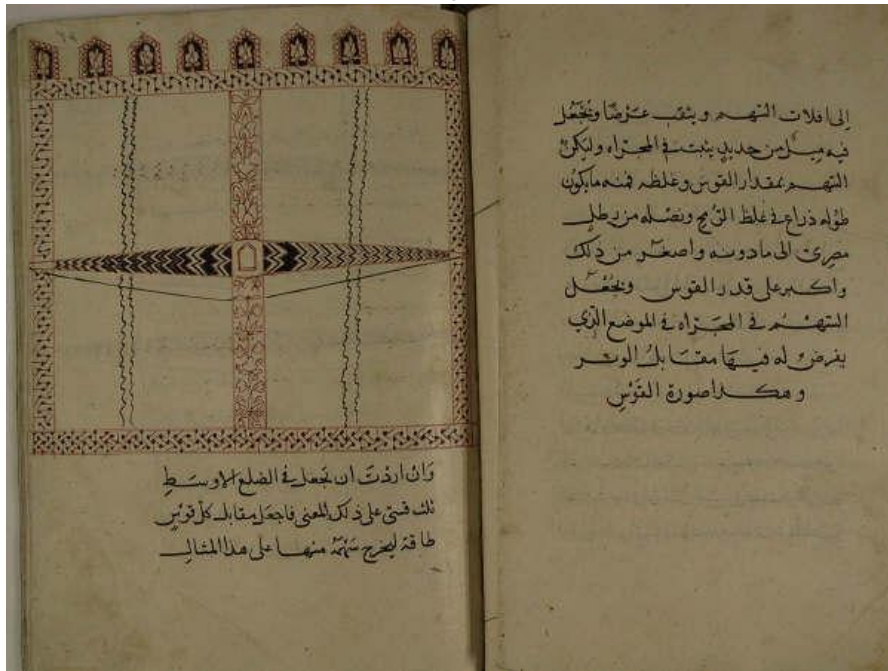 إلى افلات السهم ويثقب عرضًا ونجعل
فيه ميل من حديد يثبت في المجراه وليكن
السهم بمقدار القوس وغلظه فمنه ما يكون
طوله ذراع في غلظ الرمح ونصله من رطل
مصرى الى ما دونه واصغر من ذلك
واكبر على قدر القوس ويجعل
السهم في المجراه في الموضع الذي
يفرض له فيها مقابل الوتر
وهكذا صورة القوس
وان اردت ان تجعل في الضلع الاوسط
ثلث قسى على ذلك المعنى فاجعل مقابل كل قوس
طاقة ليخرج سهمه منها على هذا المثال